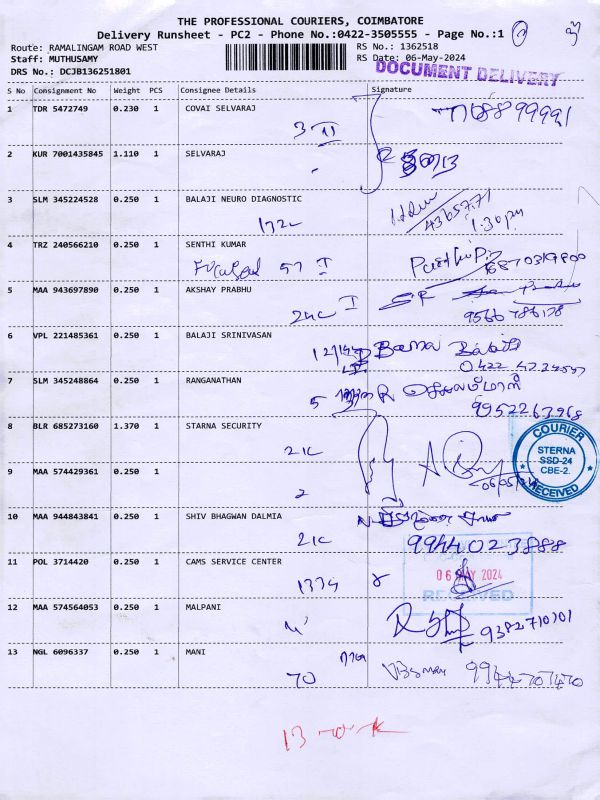 THE PROFESSIONAL COURIERS, COIMBATORE
Delivery Runsheet - PC2 - Phone No.:0422-3505555 - Page No.:1
Route: RAMALINGAM ROAD WEST
Staff: MUTHUSAMY
DRS No.: DCJB136251801
RS No.: 1362518
RS Date: 06-May-2024
DOCUMENT DELIVERY
S No Consignment No Weight PCS Consignee Details Signature
1 TDR 5472749 0.230 1 COVAI SELVARAJ
2 KUR 7001435845 1.110 1 SELVARAJ
3 SLM 345224528 0.250 1 BALAJI NEURO DIAGNOSTIC
1.30 pm
4 TRZ 240566210 0.250 1 SENTHI KUMAR
57 I
5 MAA 943697890 0.250 1 AKSHAY PRABHU
9566 786128
6 VPL 221485361 0.250 1 BALAJI SRINIVASAN
7 SLM 345248864 0.250 1 RANGANATHAN
5
9952263968
8 BLR 685273160 1.370 1 STARNA SECURITY
COURIER
STERNA
SSD-24
CBE-2.
RECEIVED
9 MAA 574429361 0.250 1
2
10 MAA 944843841 0.250 1 SHIV BHAGWAN DALMIA
9944023888
11 POL 3714420 0.250 1 CAMS SERVICE CENTER
06 MAY 2024
RECEIVED
12 MAA 574564053 0.250 1 MALPANI
9382710101
13 NGL 6096337 0.250 1 MANI
70
9944707470
13